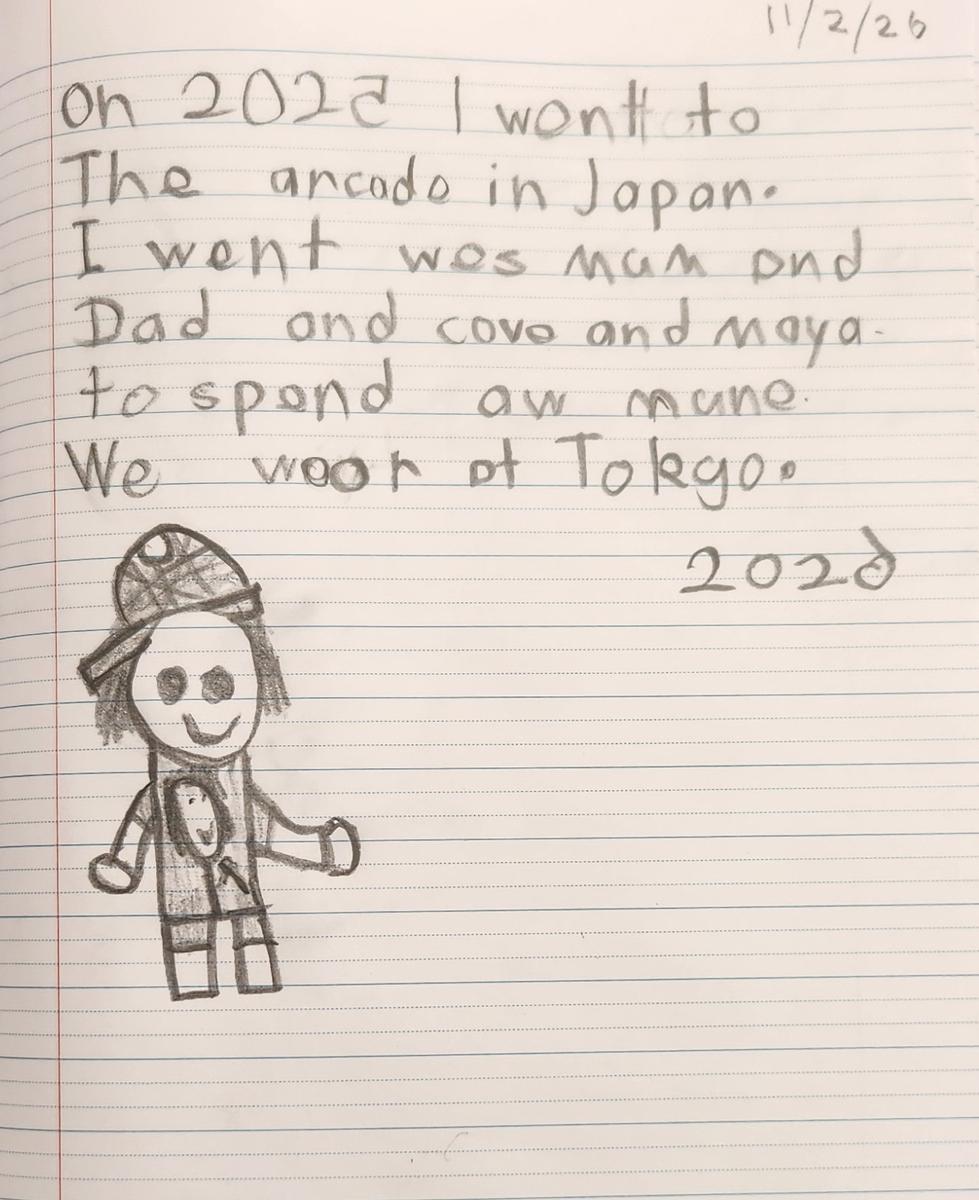 11/2/26
On 2025 I went to
The arcade in Japan.
I went wes mum and
Dad and cove and maya.
to spend aw mune.
We woor at Tokyo.
2026